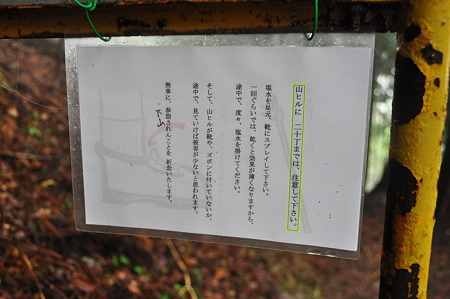 山ヒルに 二十丁までは、注意して下さい。
塩水を足元、靴にスプレイして下さい。
一回ぐらいでは、乾くと効果が薄くなりますから、
途中で、度々、塩水を掛けてください。
そして、山ヒルが靴や、ズボンに付いていないか、
途中で、見ていけば被害が少ないと思われます。
無事に、参詣されんことを 祈念いたします。
下山